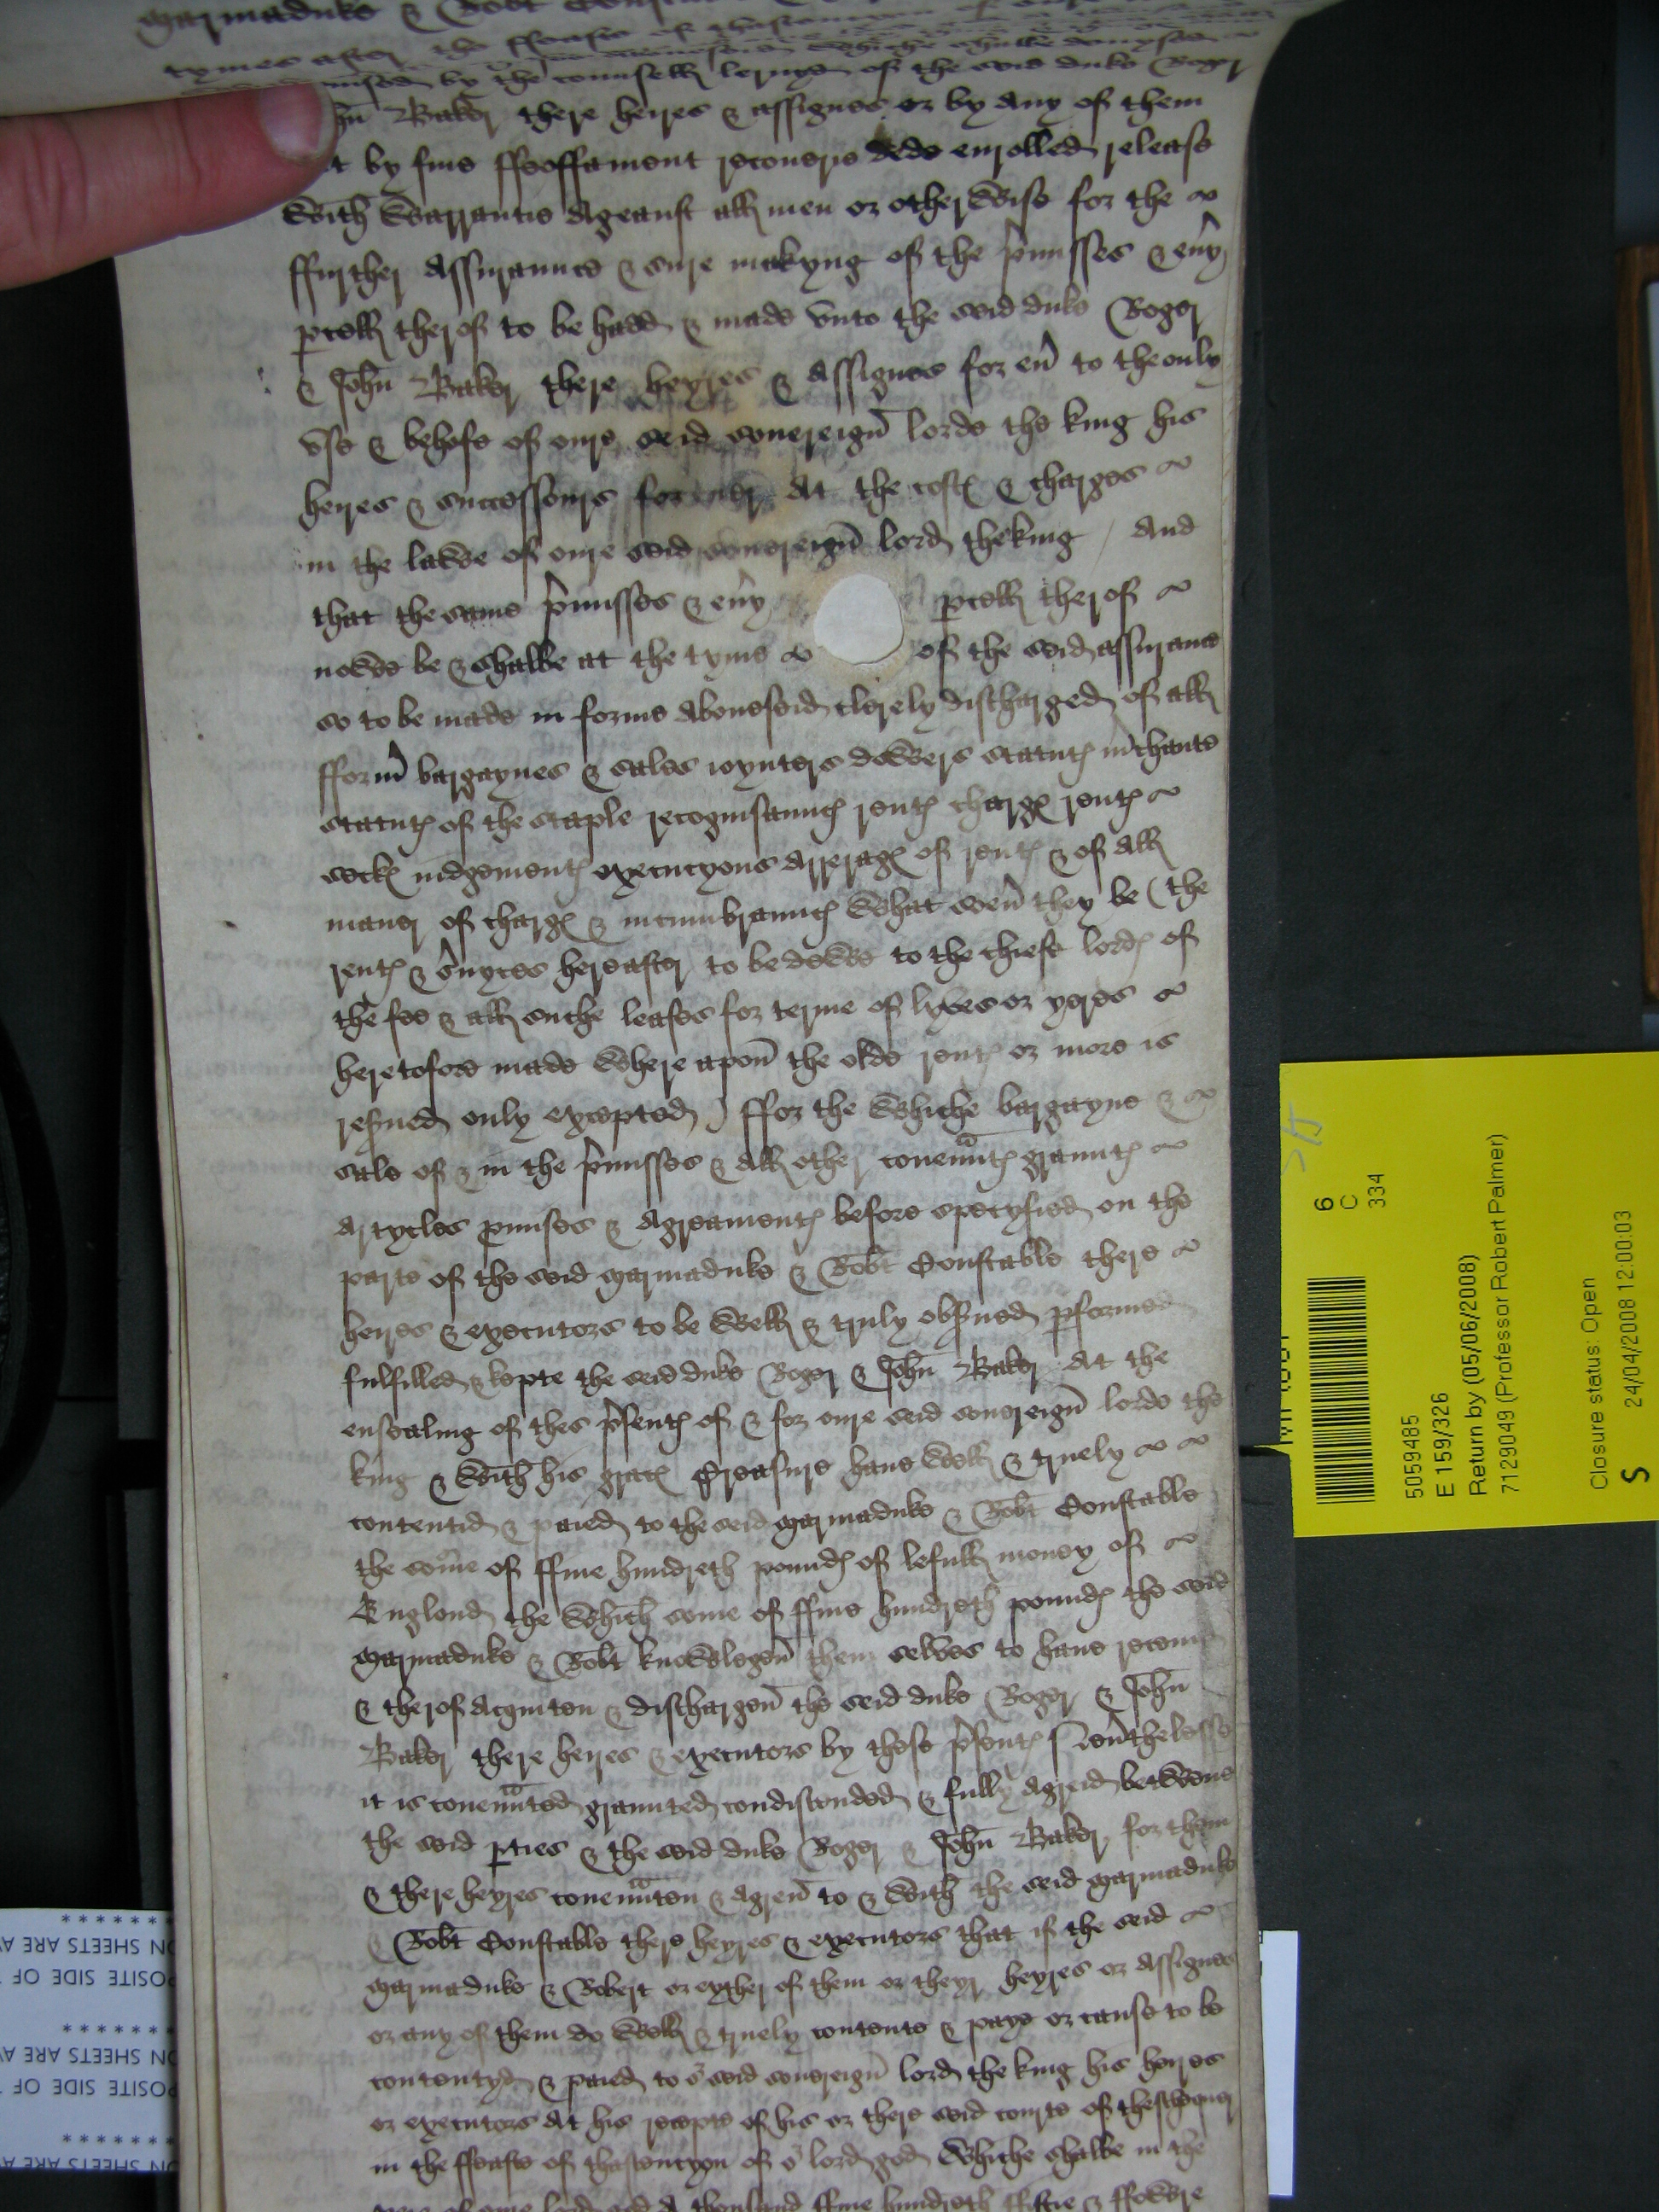 Marmaduke & Robt
tymes after the ffeaste of
by the counsell lernyd of the seid duke Roger
Baker there heires & assignes or by any of them
by fine ffeoffament recoverie dede enrolled release
with Warrantie Ageanst all men or otherwise for the
ffurther Assuraunce & sure makyng of the p'misses & eu'y
pcell therof to be hadd & made vnto the seid duke Roger
& John Baker there heyres & Assignes for eu' to theonly
vse & behofe of oure seid souereign lorde the king his
heires & successours for euer At the cost & charges
in the lawe of oure seid souereign lord theking / And
that the same p'misses & eu'y pcell therof
nowe be & shalbe at the tyme of the seid assurance
so to be made in forme Aboueseid clerely discharged of all
fform' bargaynes & sales ioynters dowers statut m'chante
statut of the staple recognisaunc rent charge rent
secke iudgement execucyons Arrerag of rent & of all
maner of charg & incumbraunc What soeu' they be (the
rent & s'uyces hereafter to be dewe to the chiefe lord of
the fee & all suche leases for terme of lyves or yeres
heretofore made Where apon the olde rent or more is
res'ued only excepted) ffor the Whiche bargayne &
sale of & in the p'misses & all other couen'nt graunt
Artycles pmises & Agreament before specyfied on the
parte of the seid Marmaduke & Robt Constable there
heires & executors to be Well & truly obs'ued pformed
fulfilled & kepte the seid duke Roger & John Baker At the
ensealing of thes p'sent of & for oure seid souereign lorde the
king & With his grac treasure haue Well & truely
contentid & paied to the seid Marmaduke & Robt Constable
the some of ffiue hundreth pound of lefull money of
Englond the Which some of ffiue hundreth pound the seid
Marmaduke & Robt knowlegen them selves to haue
& therof Acquiten & dischargen the seid duke Roger & John
Baker there heires & executors by these p'sent Neu'thelesse
it is couen'nted graunted condiscended & fully Agreid betwene
the seid pties & the seid duke Roger & John Baker for them
& there heyres couen'nten & Agreen to & With the seid Marmaduke
& Robt Constable there heyres & executors that if the seid
Marmaduke & Robert or eyther of them or theyr heyres or Assignes
or any of them do Well & truely contente & paye or cause to be
contentyd & paied to or seid souereign lord the king his heires
or executors At his recepte of his or there seid courte of theschequer
in the ffeaste of thascencyon of or lord god Whiche shalbe in the
yere of oure lord god A thousand ffiue hundreth fiftie & ffowre
6
C
334
5059485
E 159/326
Return by (05/06/2008)
7129049 (Professor Robert Palmer)
Closure status: Open
S 24/04/2008 12:00:03
******
ON SHEETS ARE
POSITE SIDE OF
******
ON SHEETS ARE
POSITE SIDE OF
******
ON SHEETS ARE